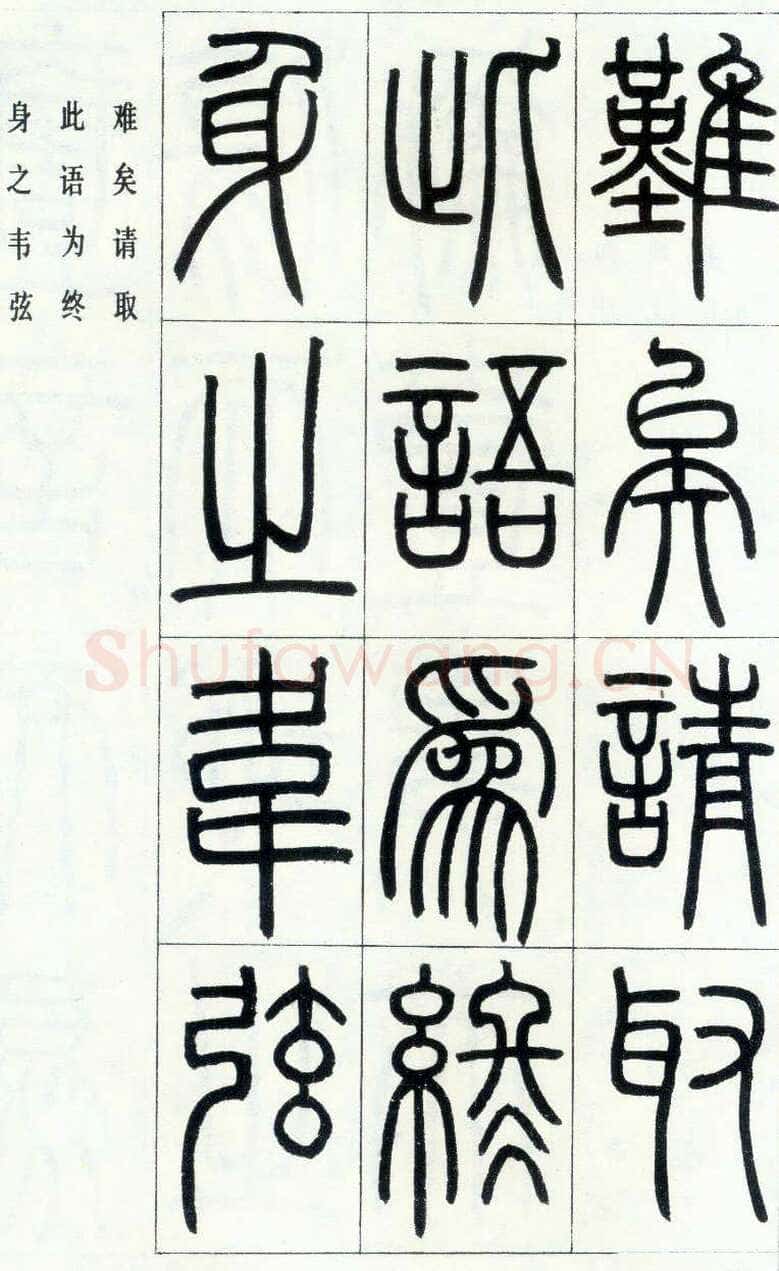 難矣請取
此語爲終
身之韋弦
难矣请取
此语为终
身之韦弦
Shufawang.CN